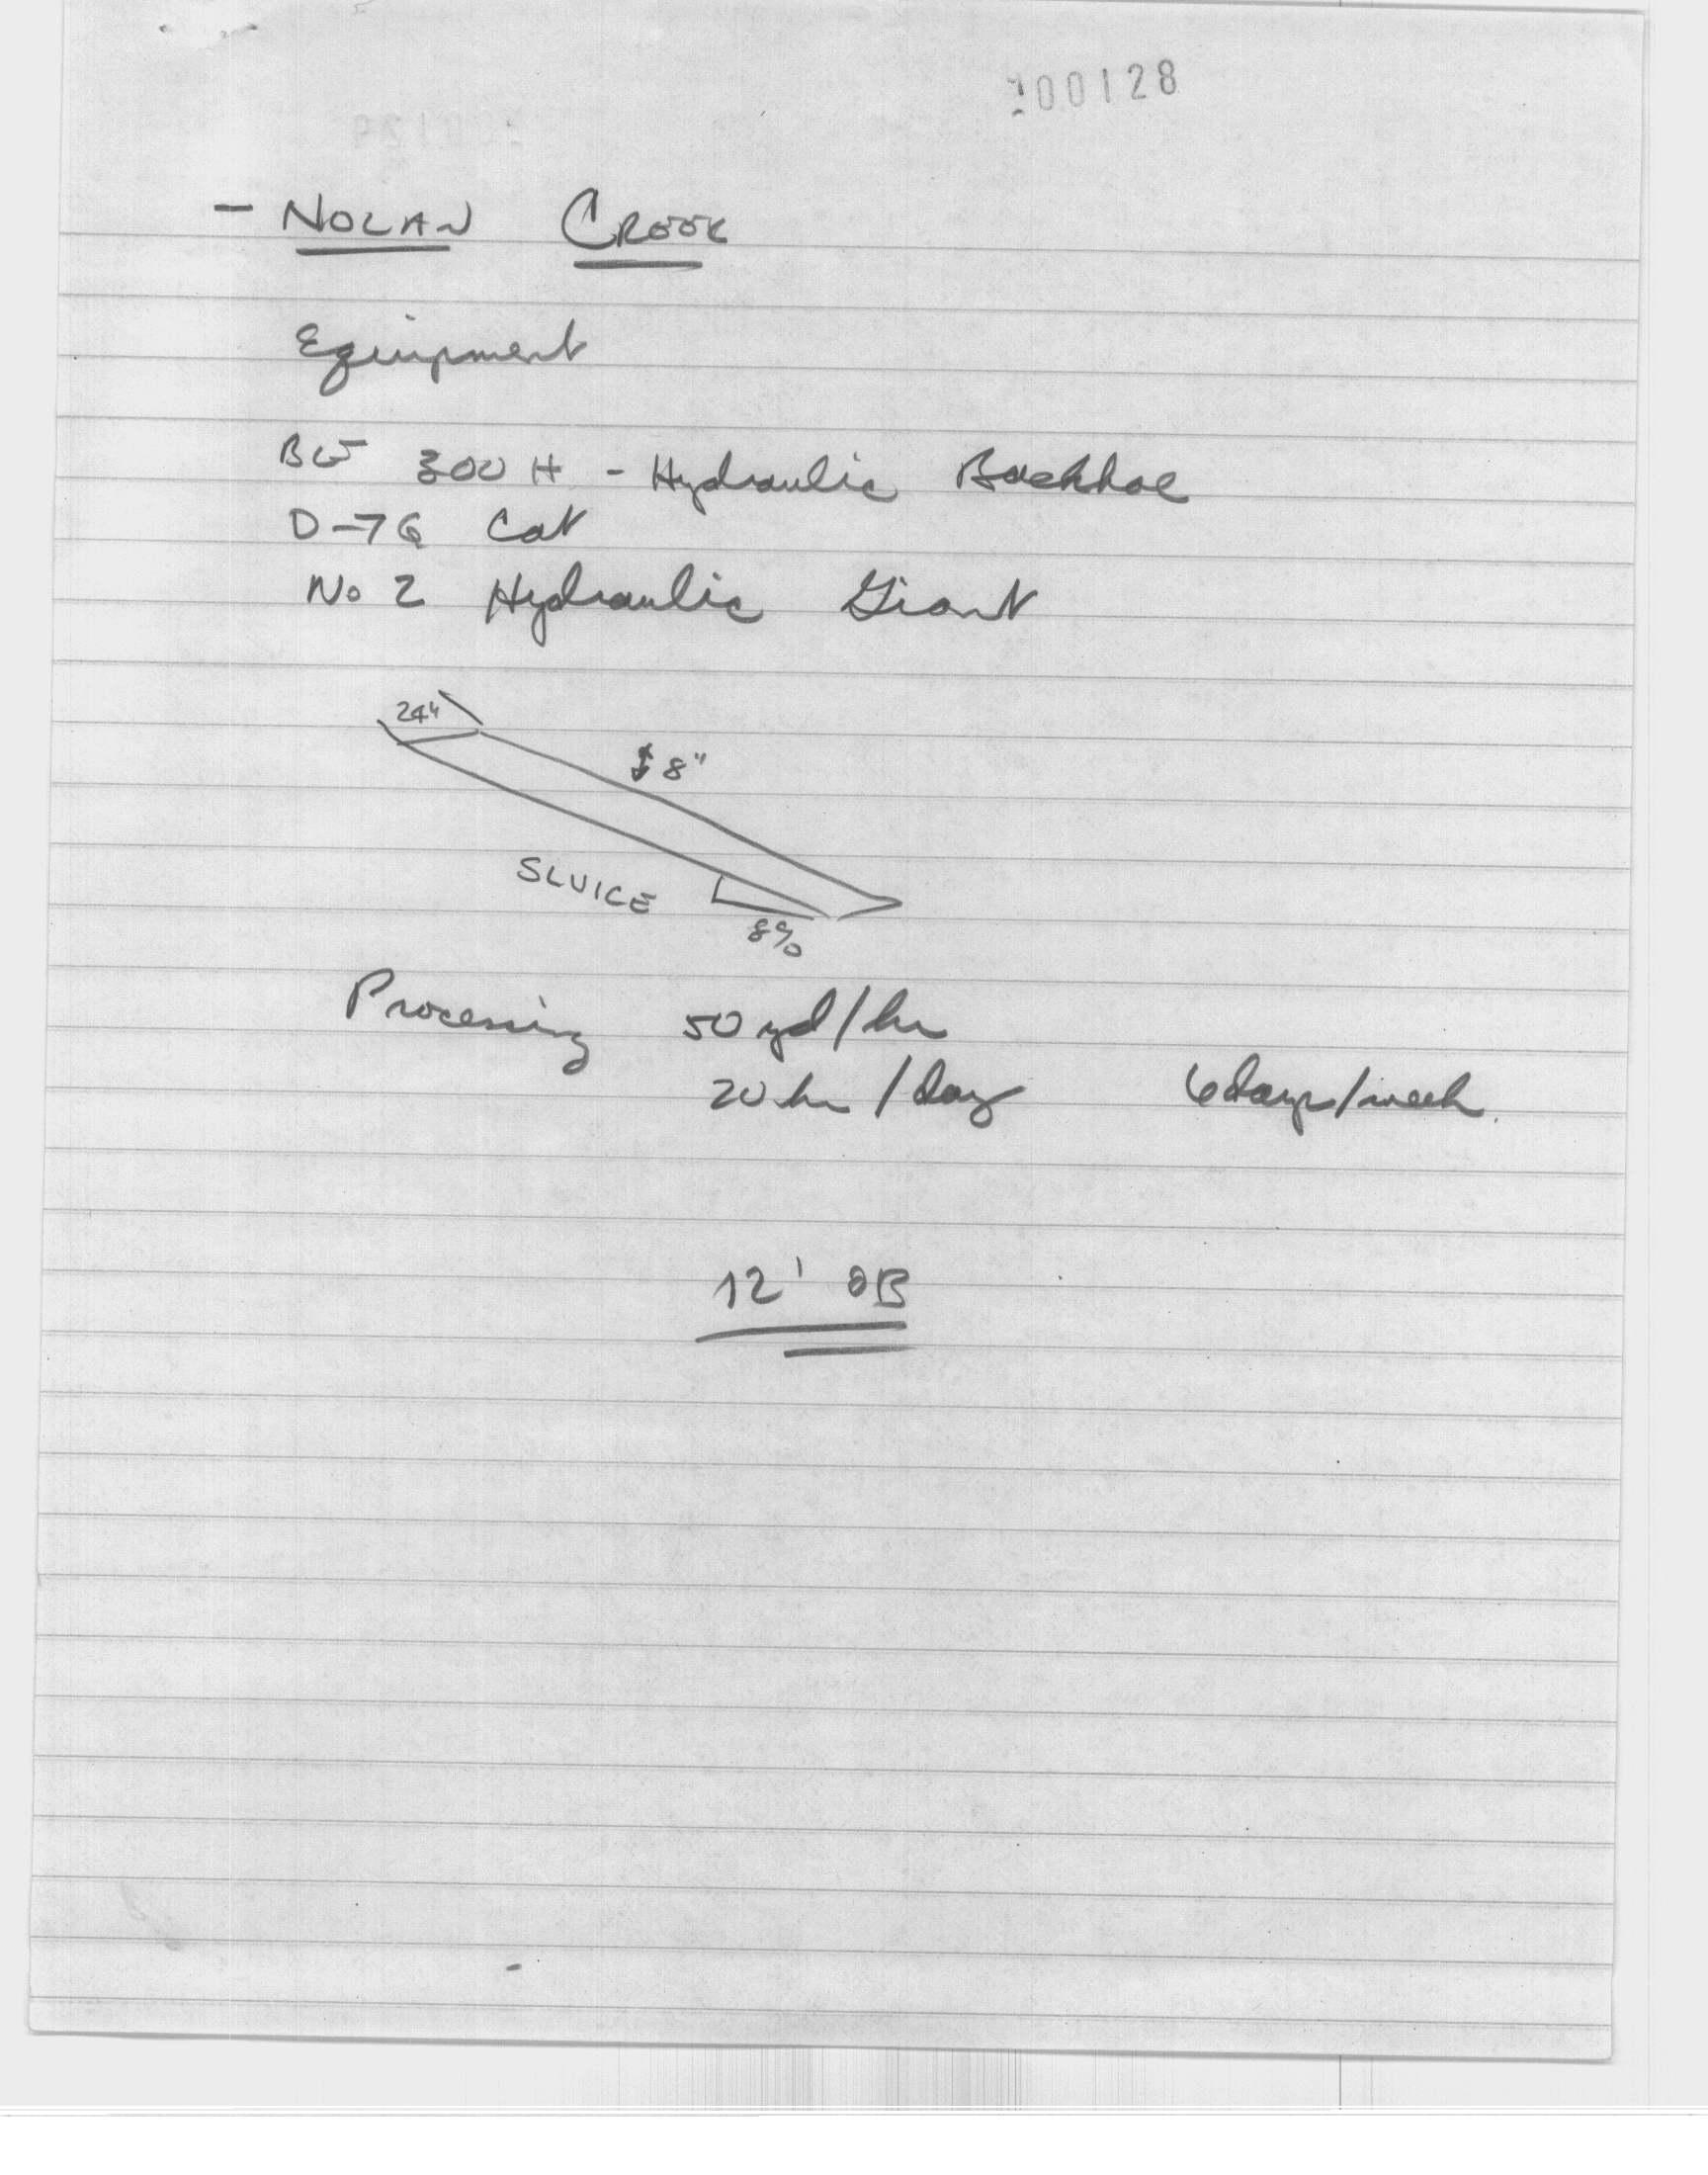 00128
- NOLAN CREEK
Equipment
300 H - Hydraulic Backhoe
D-7G Cat
No 2 Hydraulic Giant
24"
↕ 8"
SLUICE
8%
Processing 50 yd/hr
20 hr/day 6 days/week.
12' OB